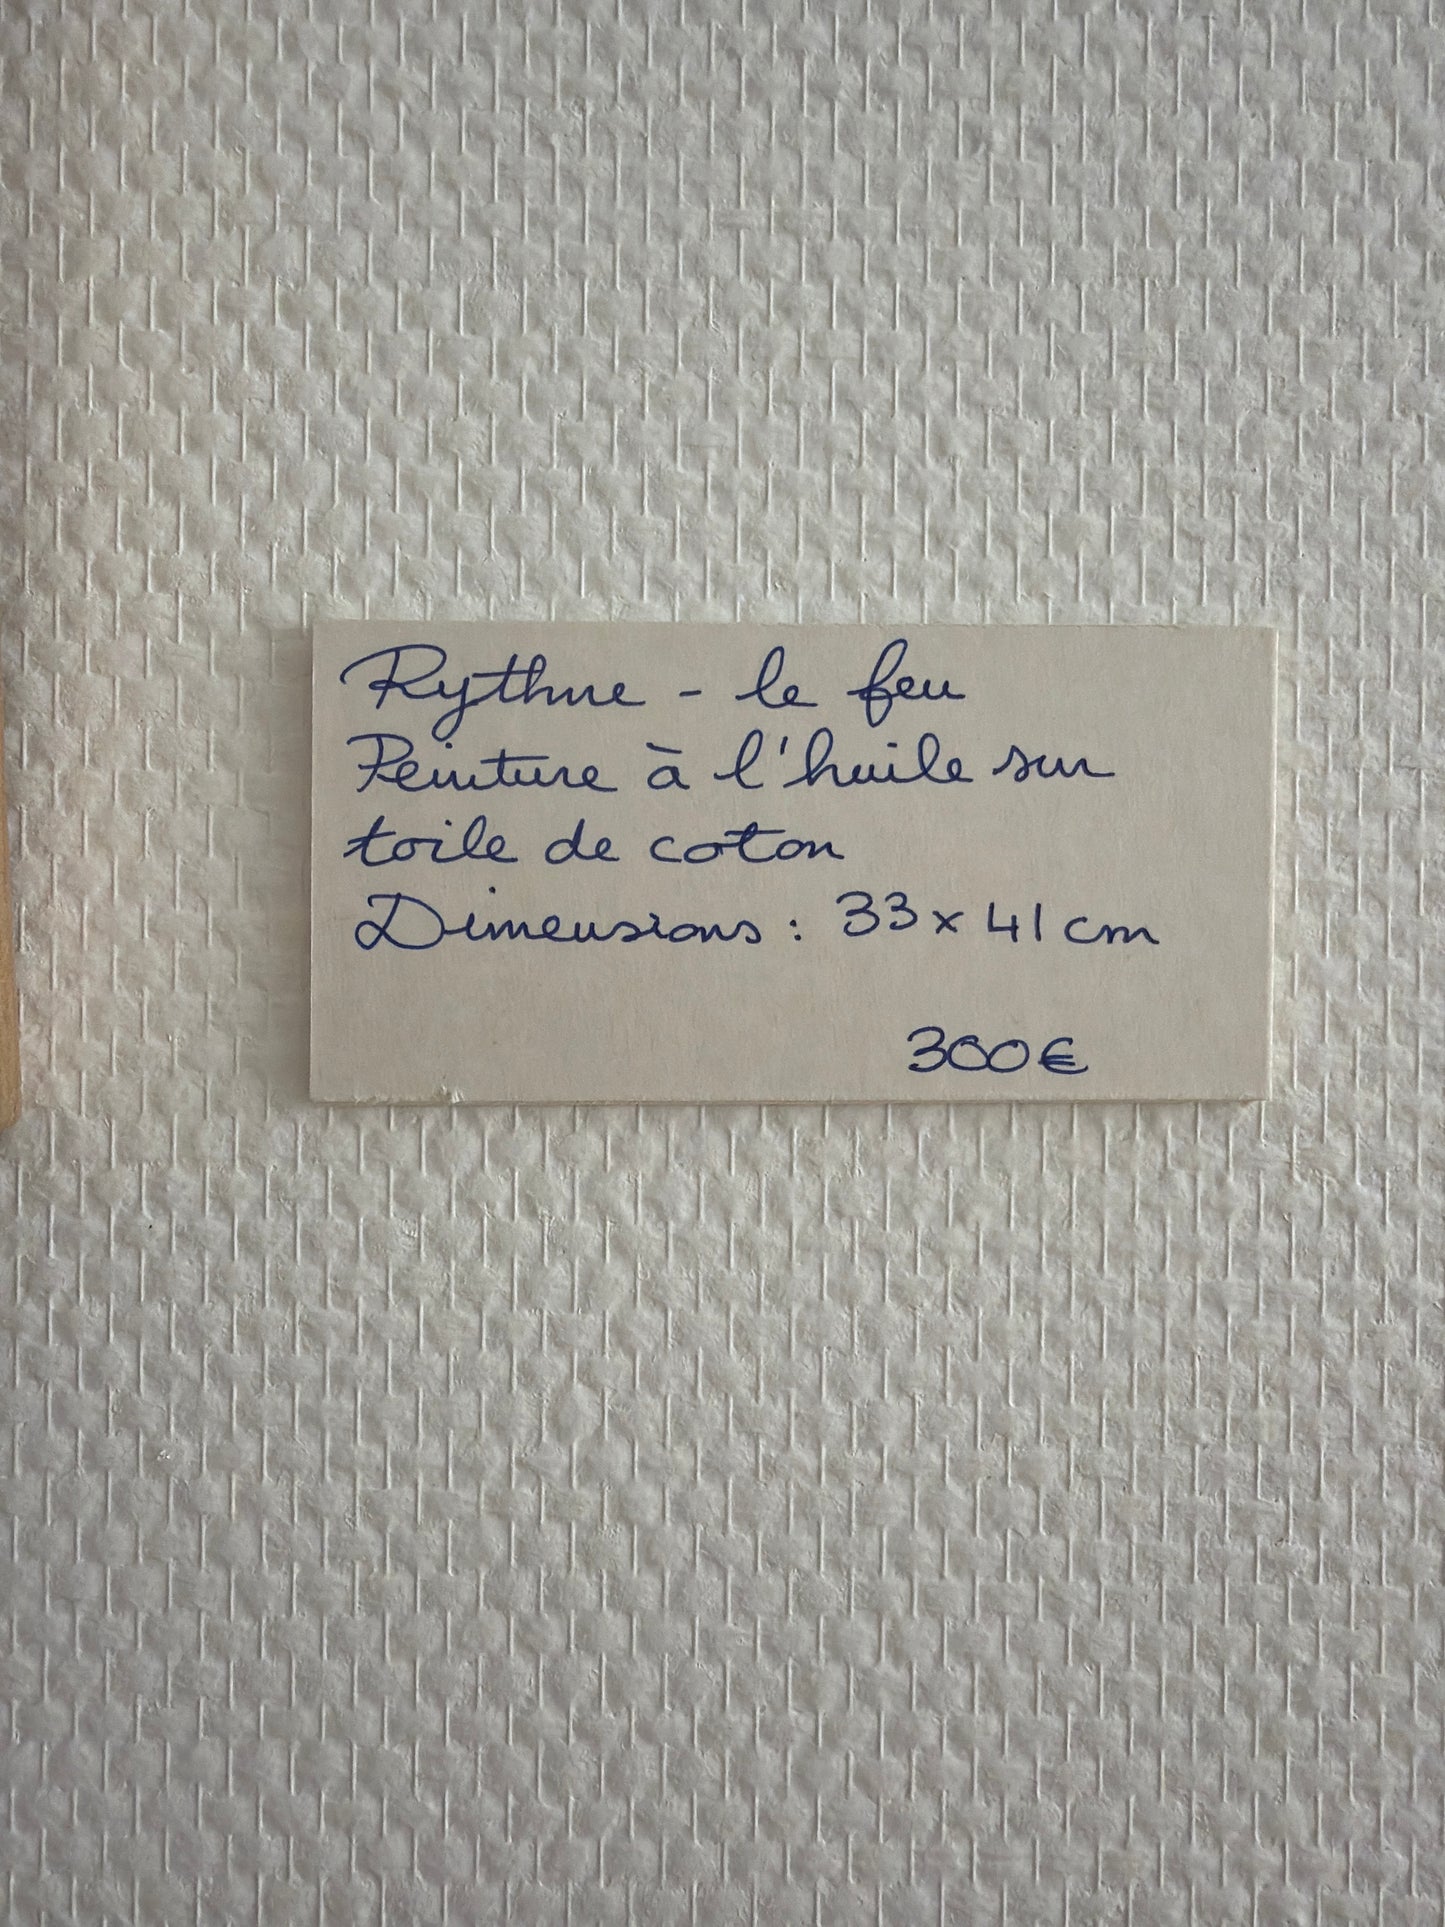 Rythme - le feu
Peinture à l'huile sur
toile de coton
Dimensions : 33 x 41 cm
300€